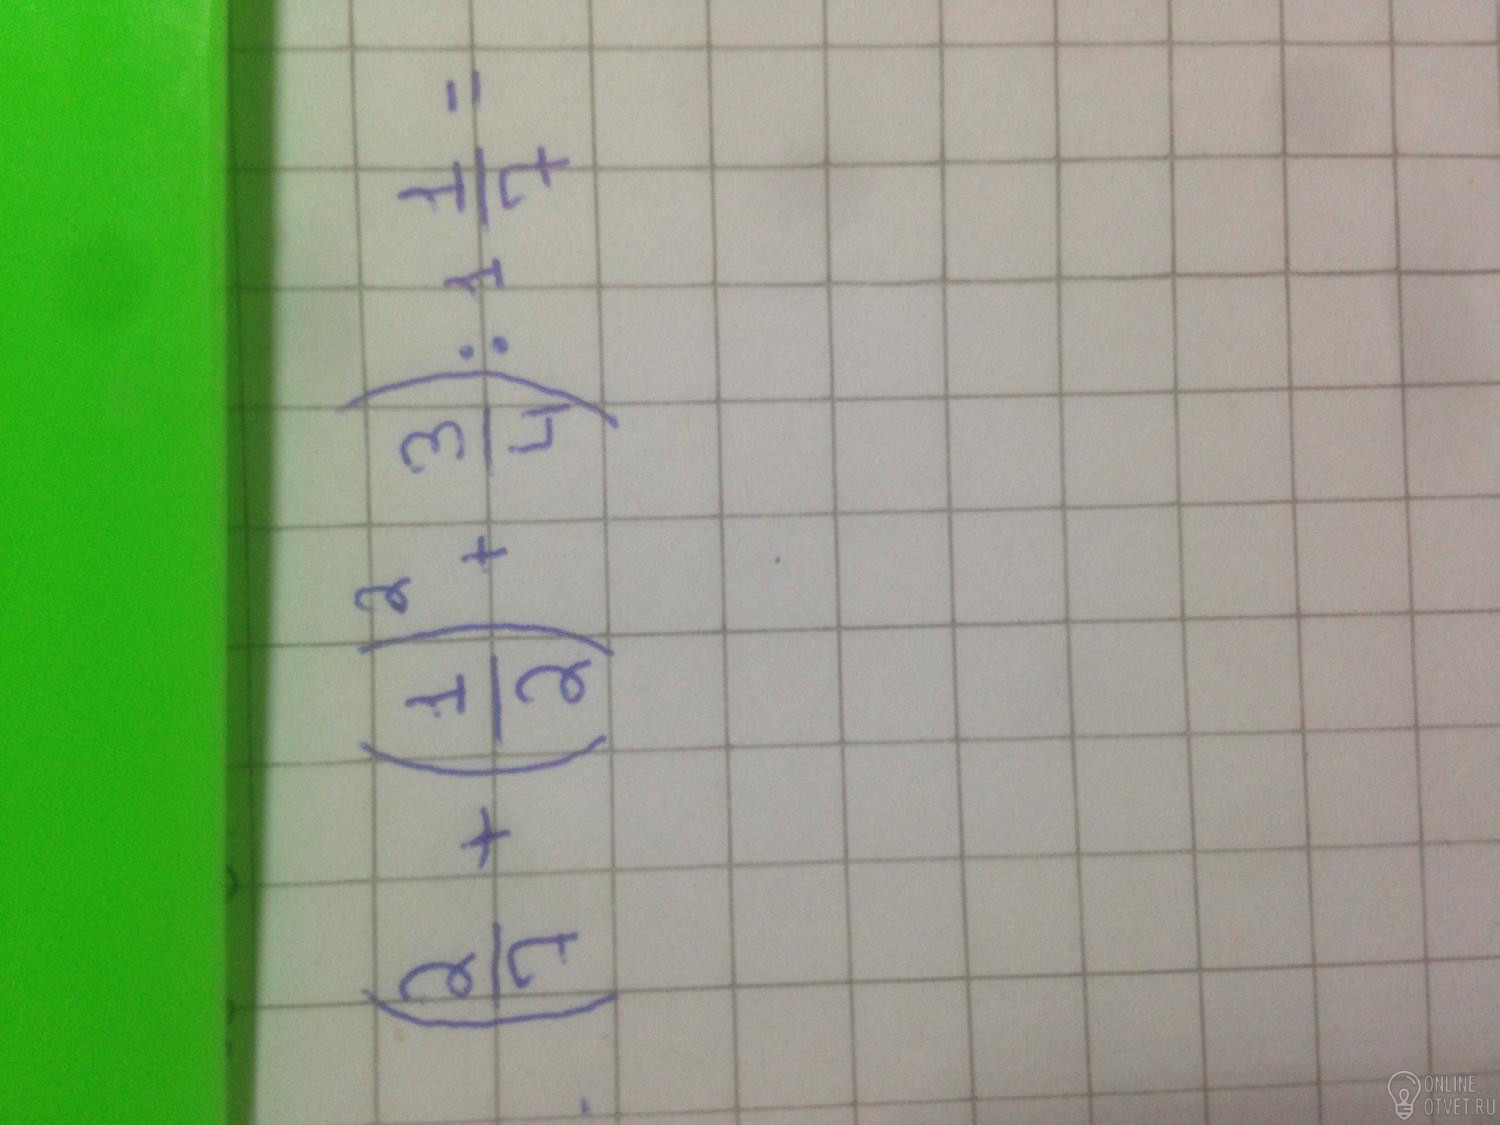 (2/7 + (1/2)² + 3/4) : 1 1/7 =
ONLINE
OTVET.RU